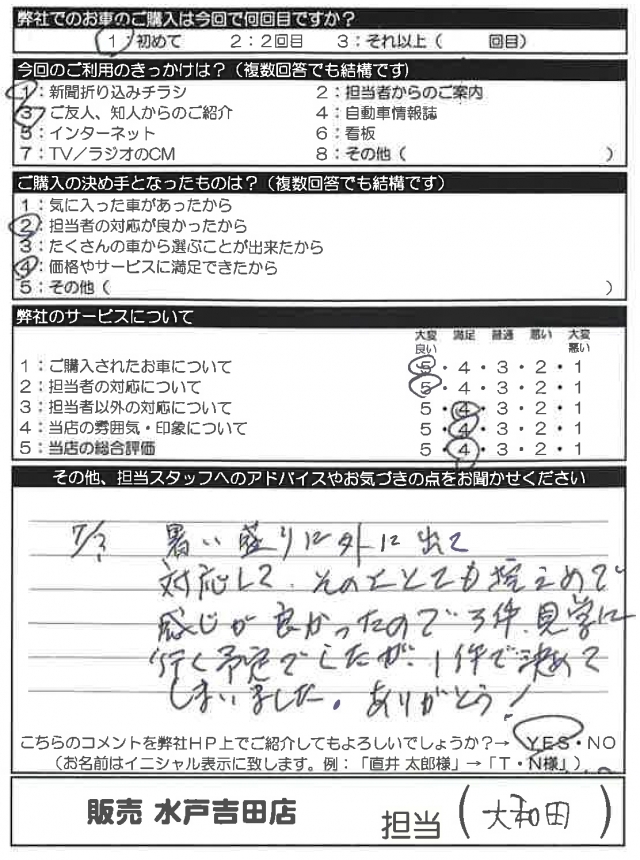 弊社でのお車のご購入は今回で何回目ですか?
1:初めて 2:2回目 3:それ以上( 回目)
今回のご利用のきっかけは?(複数回答でも結構です)
1:新聞折り込みチラシ 2:担当者からのご案内
3:ご友人、知人からのご紹介 4:自動車情報誌
5:インターネット 6:看板
7:TV/ラジオのCM 8:その他( )
ご購入の決め手となったものは?(複数回答でも結構です)
1:気に入った車があったから
2:担当者の対応が良かったから
3:たくさんの車から選ぶことが出来たから
4:価格やサービスに満足できたから
5:その他( )
弊社のサービスについて
大変良い 満足 普通 悪い 大変悪い
1:ご購入されたお車について 5・4・3・2・1
2:担当者の対応について 5・4・3・2・1
3:担当者以外の対応について 5・4・3・2・1
4:当店の雰囲気・印象について 5・4・3・2・1
5:当店の総合評価 5・4・3・2・1
その他、担当スタッフへのアドバイスやお気づきの点をお聞かせください
暑い盛りに外に出て
対応して、そのことも控えめで
感じが良かったので3件、見学に
行く予定でしたが、1件で決めて
しまいました。ありがとう!
こちらのコメントを弊社HP上でご紹介してもよろしいでしょうか?→ YES・NO
(お名前はイニシャル表示に致します。例:「直井 太郎様」→「T・N様」)
販売 水戸吉田店 担当(大和田)